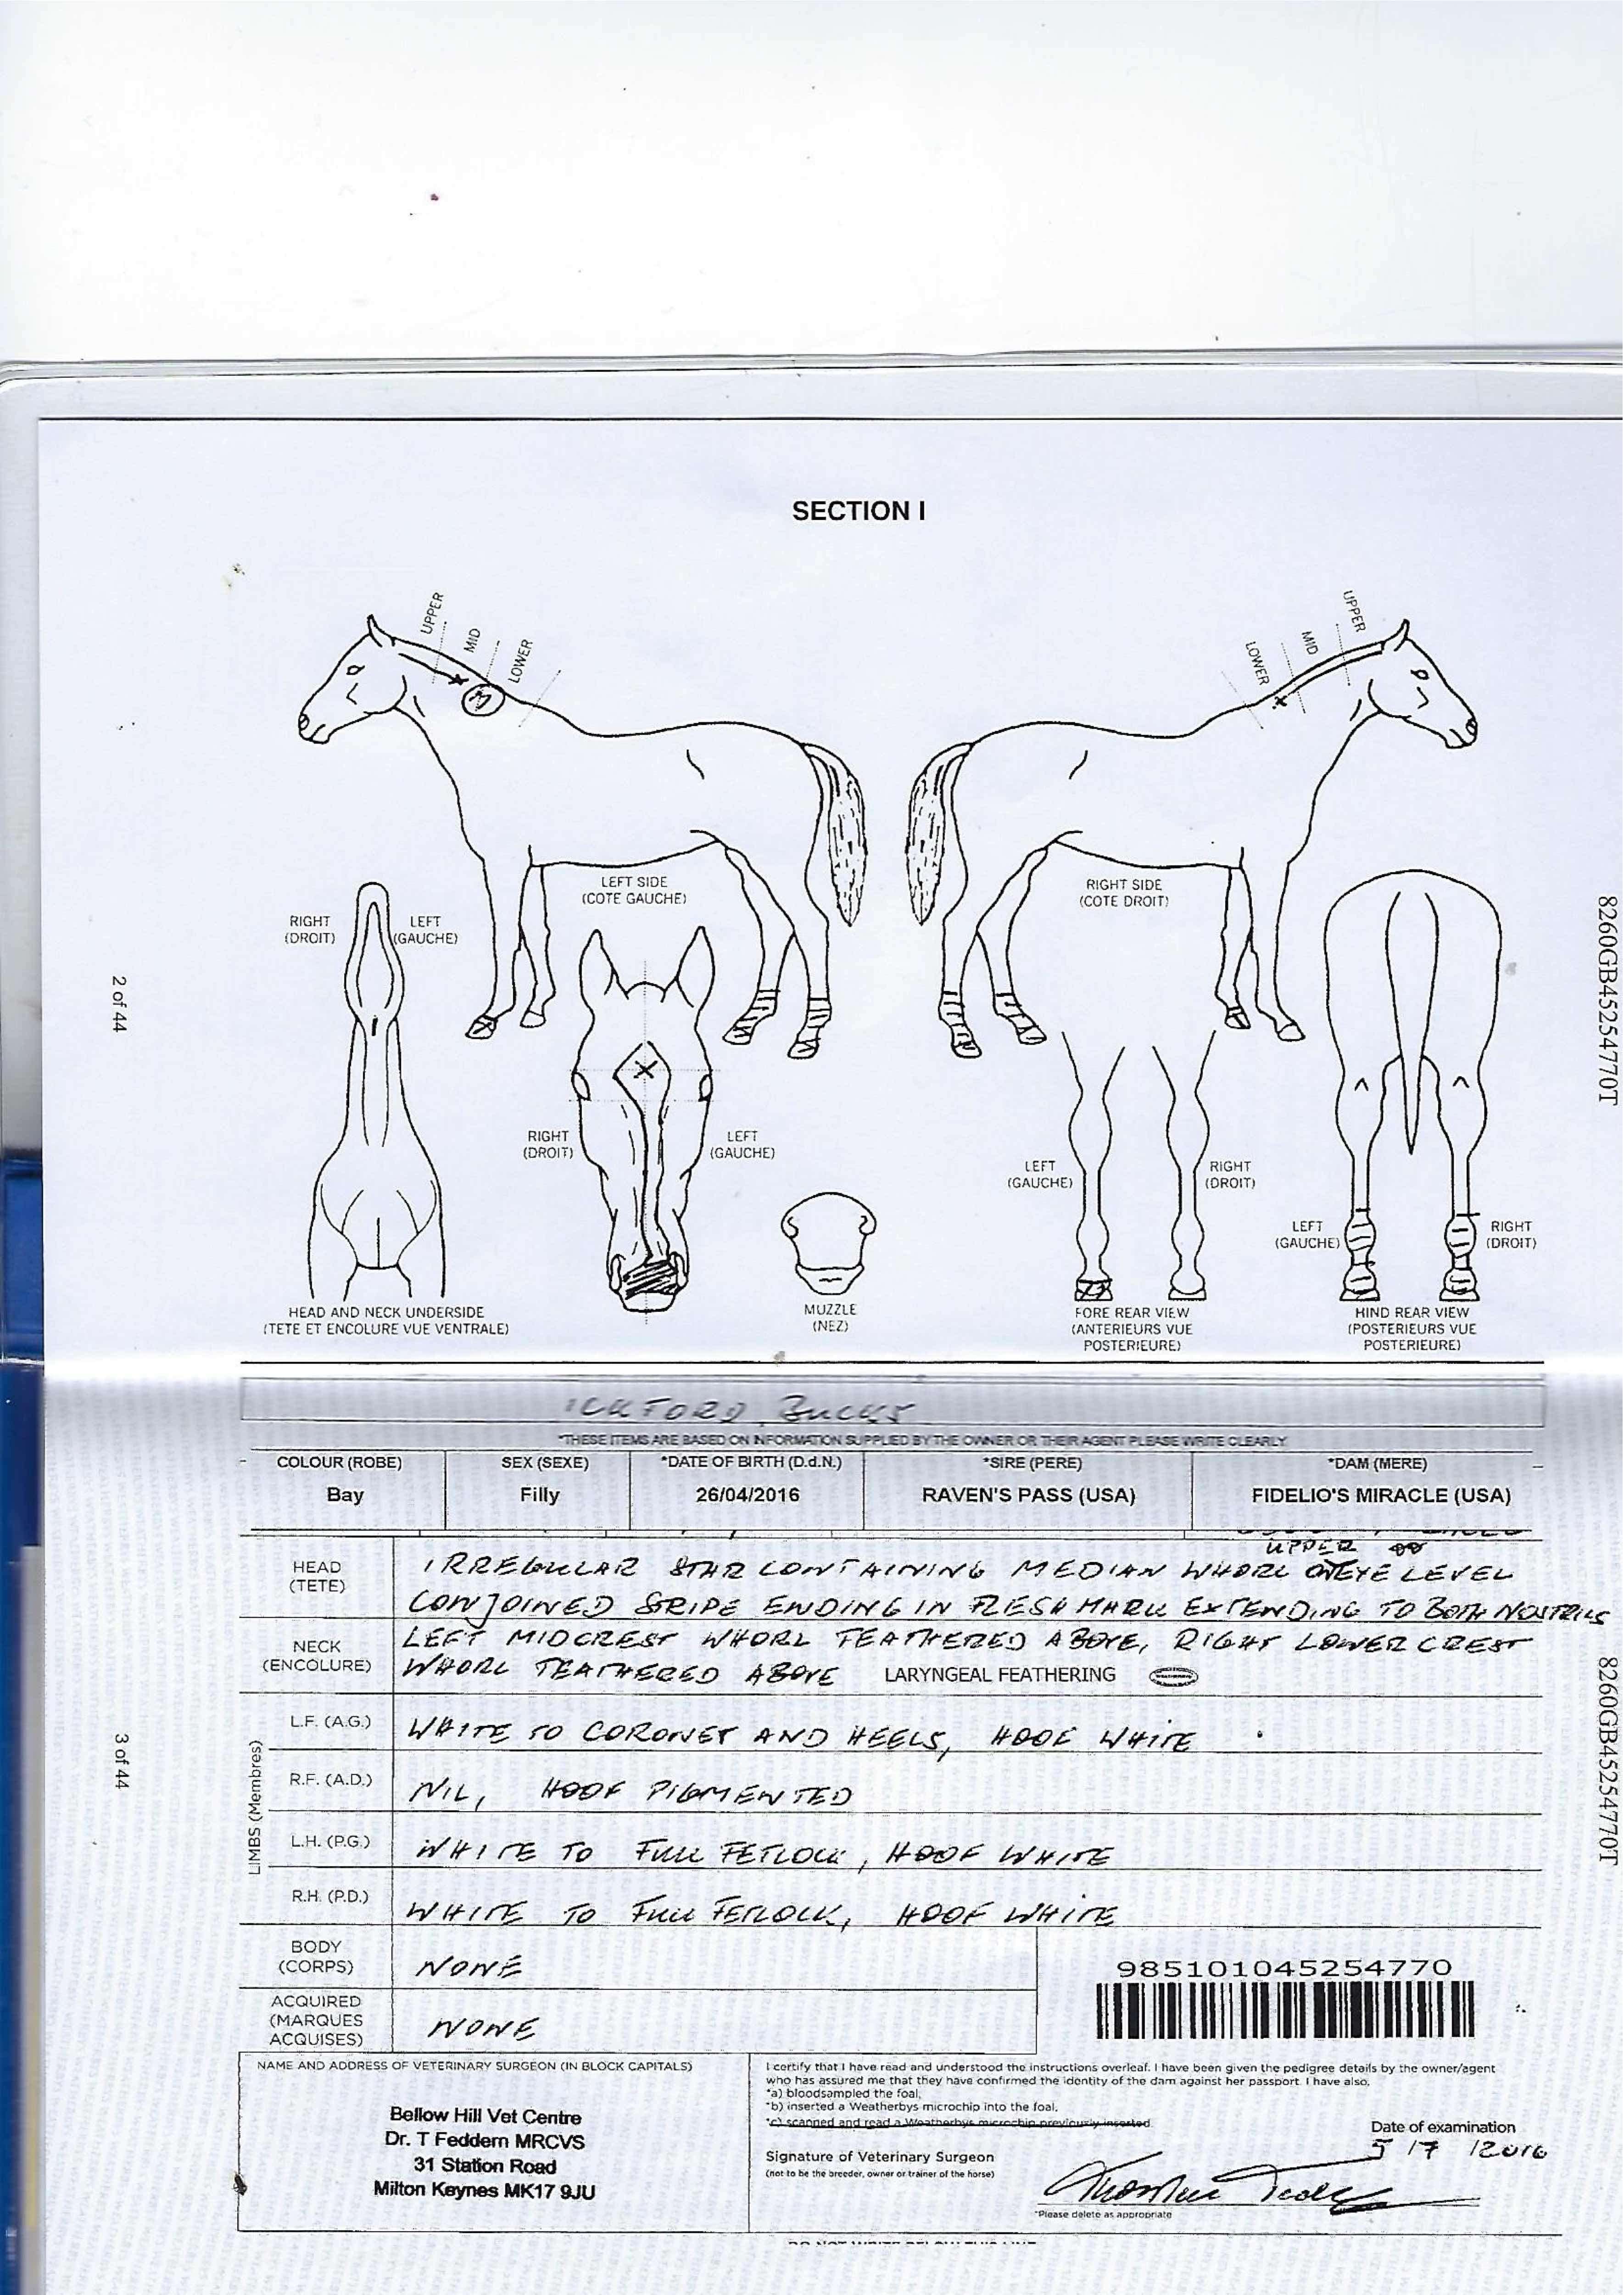 SECTION I
UPPER
MID
LOWER
UPPER
MID
LOWER
M
LEFT SIDE
(COTE GAUCHE)
RIGHT SIDE
(COTE DROIT)
RIGHT
(DROIT)
LEFT
(GAUCHE)
2 of 44
8260GB45254770T
RIGHT
(DROIT)
LEFT
(GAUCHE)
LEFT
(GAUCHE)
RIGHT
(DROIT)
LEFT
(GAUCHE)
RIGHT
(DROIT)
HEAD AND NECK UNDERSIDE
(TETE ET ENCOLURE VUE VENTRALE)
MUZZLE
(NEZ)
FORE REAR VIEW
(ANTERIEURS VUE
POSTERIEURE)
HIND REAR VIEW
(POSTERIEURS VUE
POSTERIEURE)
ICKFORD, BUCKS
*THESE ITEMS ARE BASED ON INFORMATION SUPPLIED BY THE OWNER OR THEIR AGENT PLEASE WRITE CLEARLY
COLOUR (ROBE) SEX (SEXE) *DATE OF BIRTH (D.d.N.) *SIRE (PERE) *DAM (MERE)
Bay Filly 26/04/2016 RAVEN'S PASS (USA) FIDELIO'S MIRACLE (USA)
HEAD
(TETE)
UPPER
IRREGULAR STAR CONTAINING MEDIAN WHORL EYE LEVEL
CONJOINED STRIPE ENDING IN FLESH MARK EXTENDING TO BOTH NOSTRILS
NECK
(ENCOLURE)
LEFT MIDCREST WHORL FEATHERED ABOVE, RIGHT LOWER CREST
WHORL FEATHERED ABOVE LARYNGEAL FEATHERING
LIMBS (Membres)
L.F. (A.G.) WHITE TO CORONET AND HEELS, HOOF WHITE
R.F. (A.D.) NIL, HOOF PIGMENTED
L.H. (P.G.) WHITE TO FULL FETLOCK, HOOF WHITE
R.H. (P.D.) WHITE TO FULL FETLOCK, HOOF WHITE
3 of 44
8260GB45254770T
BODY
(CORPS)
NONE
985101045254770
ACQUIRED
(MARQUES
ACQUISES)
NONE
NAME AND ADDRESS OF VETERINARY SURGEON (IN BLOCK CAPITALS)
Bellow Hill Vet Centre
Dr. T Feddern MRCVS
31 Station Road
Milton Keynes MK17 9JU
I certify that I have read and understood the instructions overleaf. I have been given the pedigree details by the owner/agent
who has assured me that they have confirmed the identity of the dam against her passport. I have also,
*a) bloodsampled the foal,
*b) inserted a Weatherbys microchip into the foal.
*c) scanned and read a Weatherbys microchip previously inserted
Date of examination
5 /7 /2016
Signature of Veterinary Surgeon
(not to be the breeder, owner or trainer of the horse)
*Please delete as appropriate